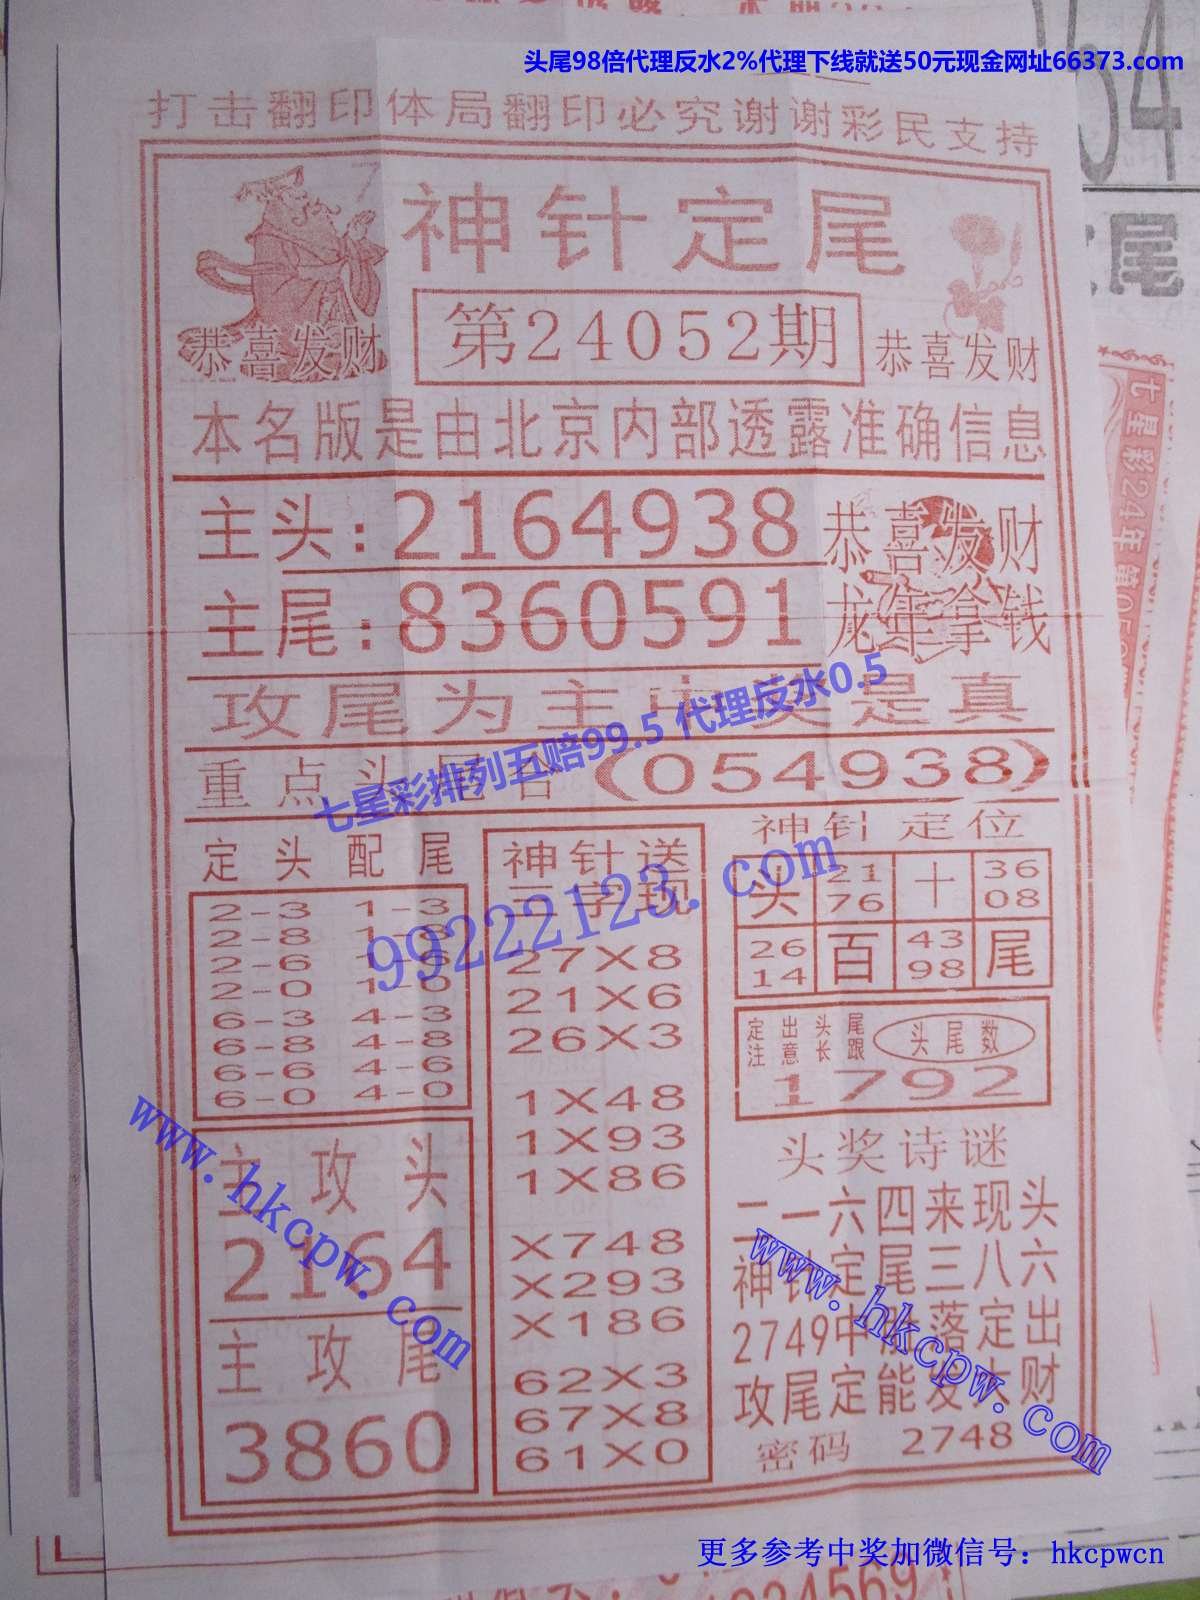 头尾98倍代理反水2%代理下线就送50元现金网址66373.com
打击翻印体局翻印必究谢谢彩民支持
神针定尾
恭喜发财
第24052期
恭喜发财
本名版是由北京内部透露准确信息
主头:2164938
恭喜发财
主尾:8360591
龙年拿钱
攻尾为主中奖是真
七星彩排列五赔99.5 代理反水0.5
重点头尾合(054938)
定头配尾
2-3 1-3
2-8 1-8
2-6 1-6
2-0 1-0
6-3 4-3
6-8 4-8
6-6 4-6
6-0 4-0
主攻头
2164
主攻尾
3860
神针送
三字现
27X8
21X6
26X3
1X48
1X93
1X86
X748
X293
X186
62X3
67X8
61X0
99222123.com
神针定位
头 21 十 36
76 08
26 百 43 尾
14 98
定出头尾
注意长跟
头尾数
1792
头奖诗谜
二一六四来现头
神针定尾三八六
2749中肚落定出
攻尾定能发大财
密码 2748
www.hkcpw.com
www.hkcpw.com
更多参考中奖加微信号：hkcpwcn
54
尾
七星彩24年第05